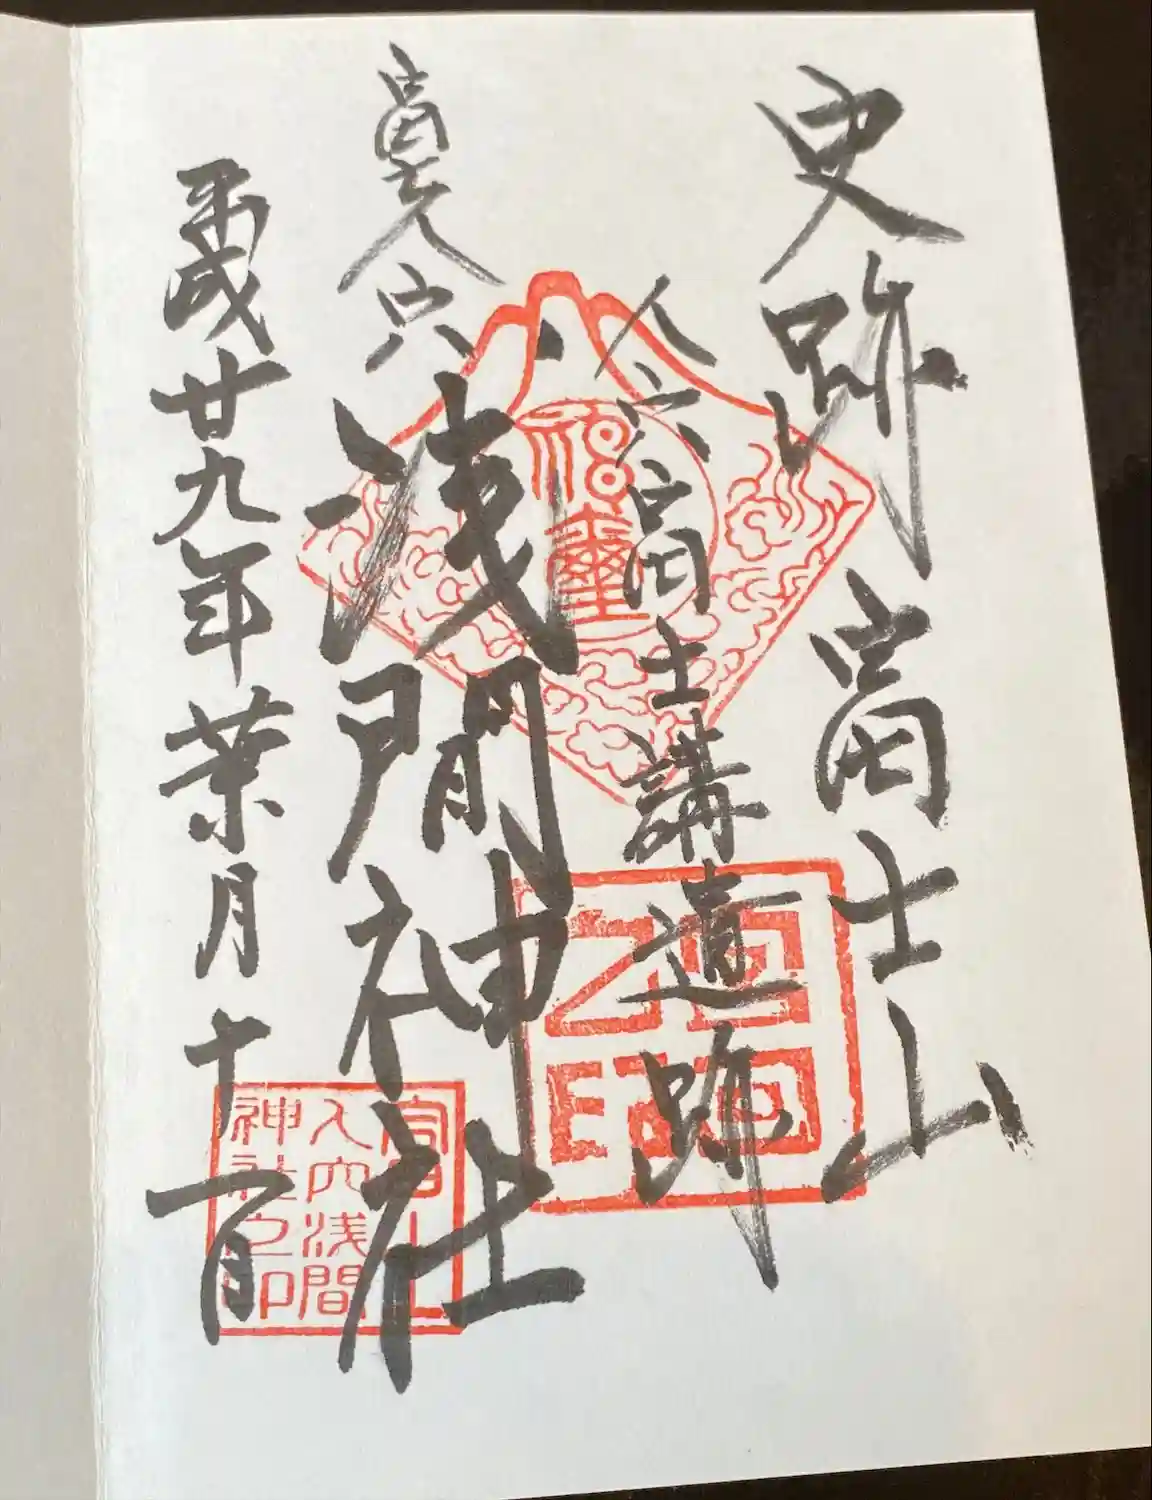 史跡 富士山
人穴富士講遺跡
富士人穴
浅間神社
平成廿九年葉月十一日
富士山
人穴浅間
神社之印